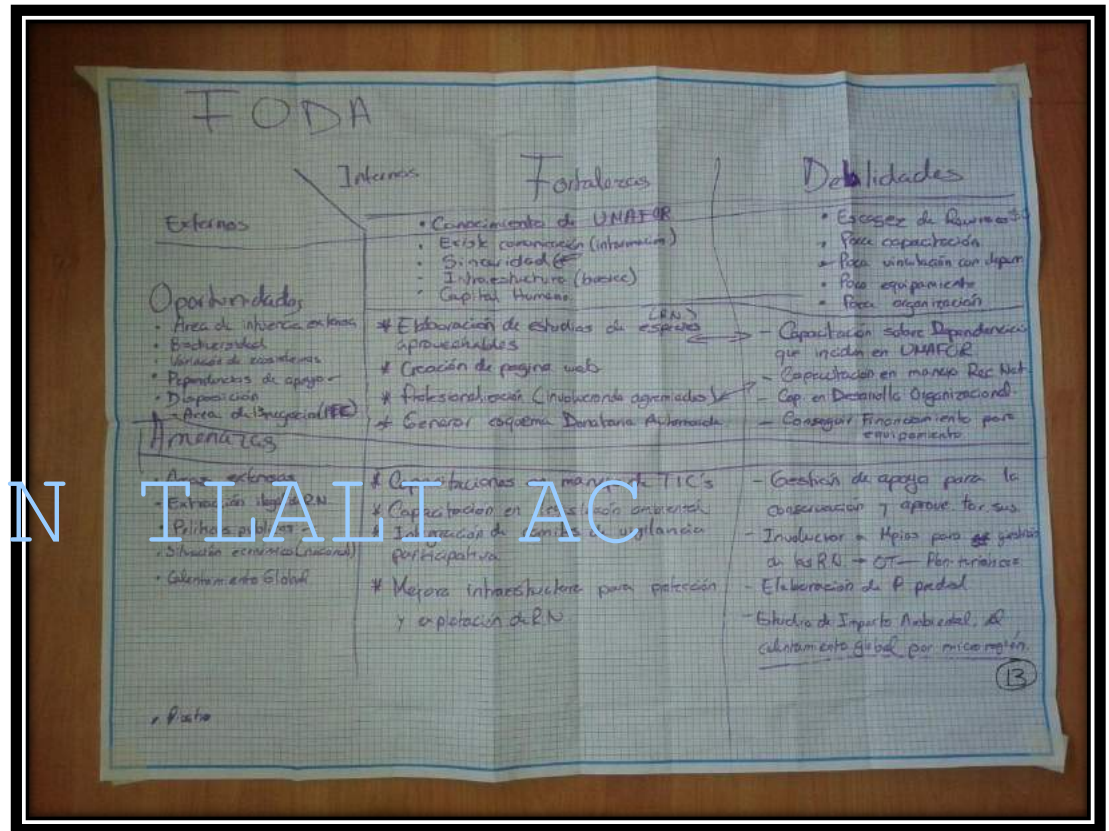 FODA
Internos
Fortalezas
Debilidades
Externos
• Conocimiento de UMAFOR
• Existe comunicación (información)
•
• Infraestructura (basica)
• Capital Humano
• Escasez de
• Poca capacitación
• Poca vinculación con
• Poco equipamiento
• Poca organización
Oportunidades
• Area de extensa
• Biodiversidad
• Variación de ecosistemas
• Dependencias de apoyo
• Disposición
- Area de
* Elaboración de estudios de (RN)
aprovechables
* Creación de pagina web
* Profesionalización (involucrando agremiados)
* Generar esquema Donataria Autorizada
- Capacitación sobre Dependencias
que incidan en UMAFOR
- Capacitación en manejo Rec Nat
- Cap. en Desarrollo Organizacional
- Conseguir Financiamiento para
equipamiento
Amenazas
• Areas extensas
• Extracción ilegal R.N.
• Politicas publicas
• Situación económica (nacional)
• Calentamiento Global
* Capacitaciones en manejo de TIC's
* Capacitacion en legislación ambiental
* Integración de comites de vigilancia
participativa
* Mejora infraestructura para protección
y explotación de R.N
- Gestión de apoyo para la
conservación y aprove. for sus.
- Involucrar a Mpios para gestión
de los R.N → OT —
- Elaboración de P predial
- Estudio de Impacto Ambiental
calentamiento global por micro región.
13
N TLALI AC